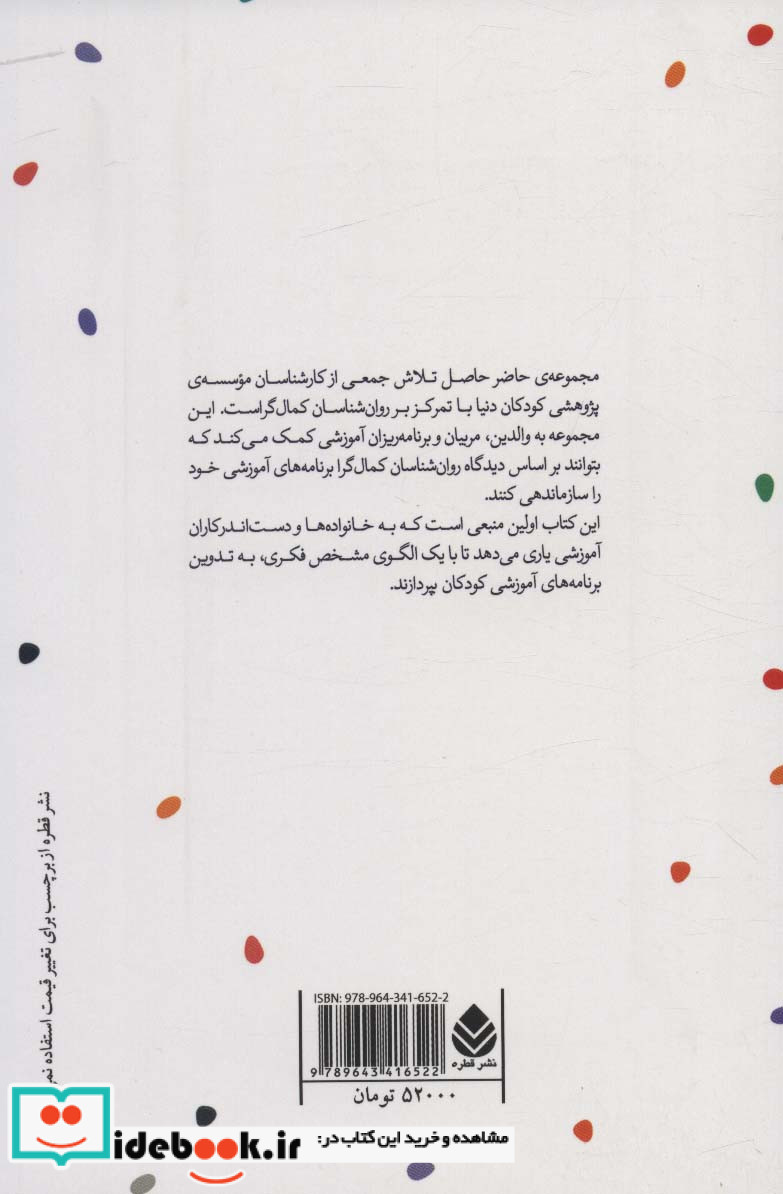 مجموعه‌ی حاضر حاصل تلاش جمعی از کارشناسان مؤسسه‌ی
پژوهشی کودکان دنیا با تمرکز بر روان‌شناسان کمال‌گراست. این
مجموعه به والدین، مربیان و برنامه‌ریزان آموزشی کمک می‌کند که
بتوانند بر اساس دیدگاه روان‌شناسان کمال‌گرا برنامه‌های آموزشی خود
را سازماندهی کنند.
این کتاب اولین منبعی است که به خانواده‌ها و دست‌اندرکاران
آموزشی یاری می‌دهد تا با یک الگوی مشخص فکری، به تدوین
برنامه‌های آموزشی کودکان بپردازند.
نشر قطره از برچسب برای تغییر قیمت استفاده
ISBN: 978-964-341-652-2
9 789643 416522
نشر قطره
۵۲۰۰۰ تومان
مشاهده و خرید این کتاب در:
idebook.ir